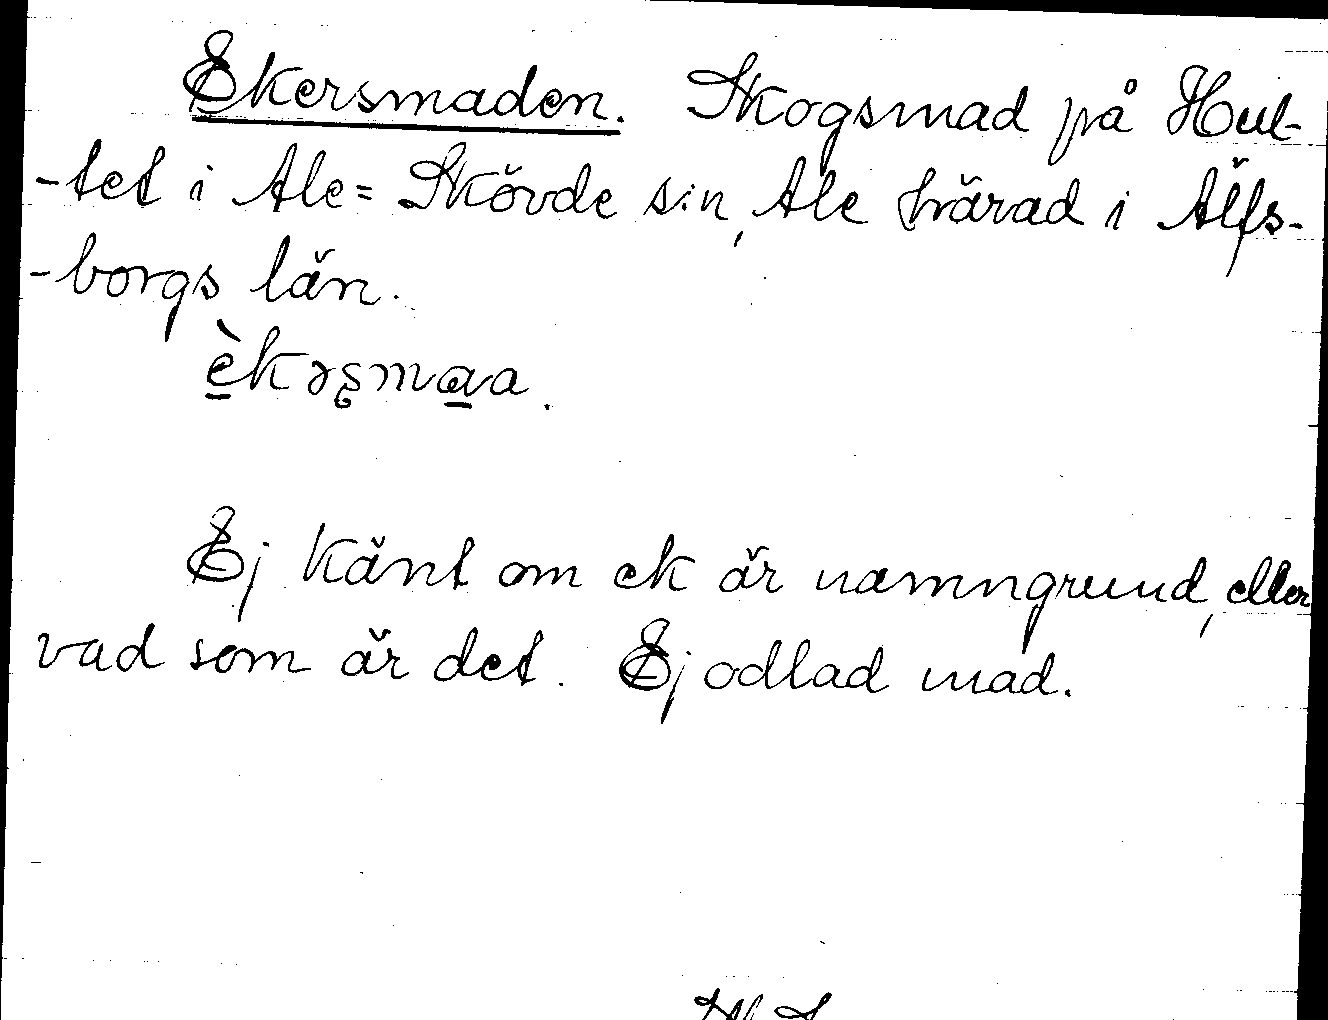 Ekersmaden. Skogsmad på Hul-
-tet i Ale=Skövde s:n, Ale härad i Älfs-
-borgs län.
èkəʂmɑa.
Ej känt om ek är namngrund, eller
vad som är det. Ej odlad mad.